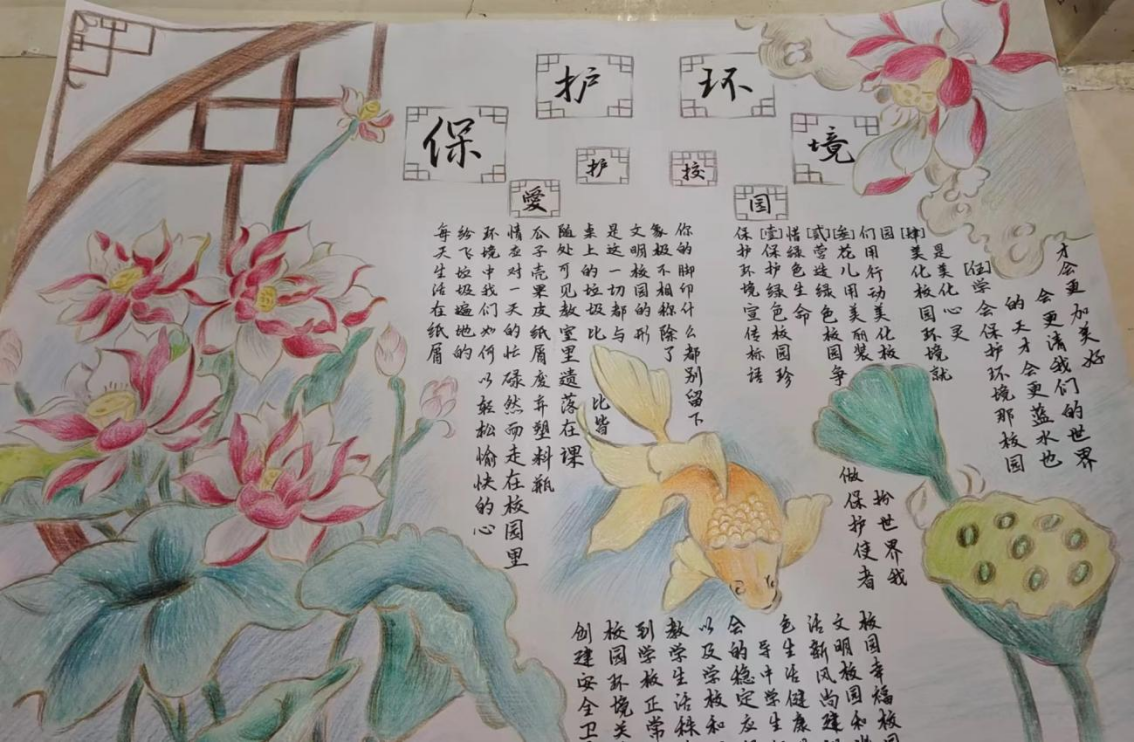 保护环境
爱护校园
每天生活在纸屑
纷飞垃圾遍地的
环境中我们如何以轻松愉快的心
情应对一天的忙碌然而走在校园里
瓜子壳果皮纸屑废弃塑料瓶
随处可见教室里遗落在课
桌上的垃圾比比皆
是这一切都与
文明校园的形
象极不相称除了
你的脚印什么都别留下
保护环境宣传标语
[壹]保护绿色校园珍
惜绿色生命
[贰]营造绿色校园争
做保护使者
[叁]花儿用美丽装
扮世界我
们用行动美化校
园
[肆]美化校园环境就
是美化心灵
[伍]学会保护环境那校园
的天才会更蓝水也
会更清我们的世界
才会更加美好
创建安全卫
校园环境关
到学校正常
教学生活秩
以及学校和
会的稳定应
导中学生
色生活健康
活新风尚建
文明校园和
校园幸福校园